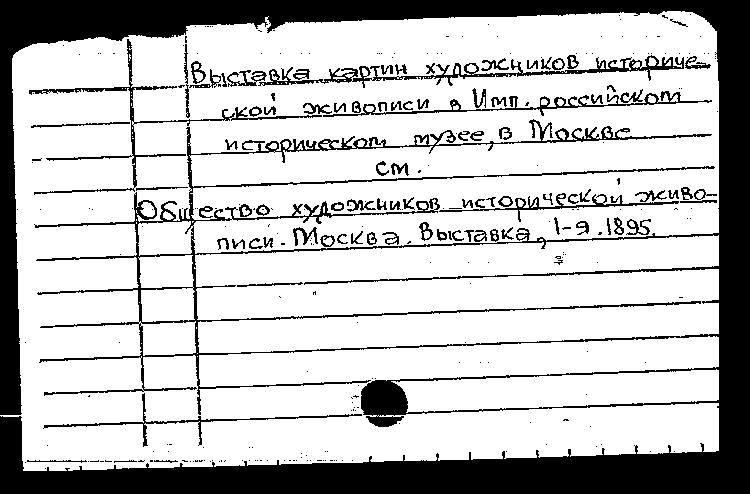 Выставка картин художников историче-
ской живописи в Имп. российском
историческом музее, в Москве
см.
Общество художников исторической живо-
писи. Москва. Выставка, 1-я. 1895.